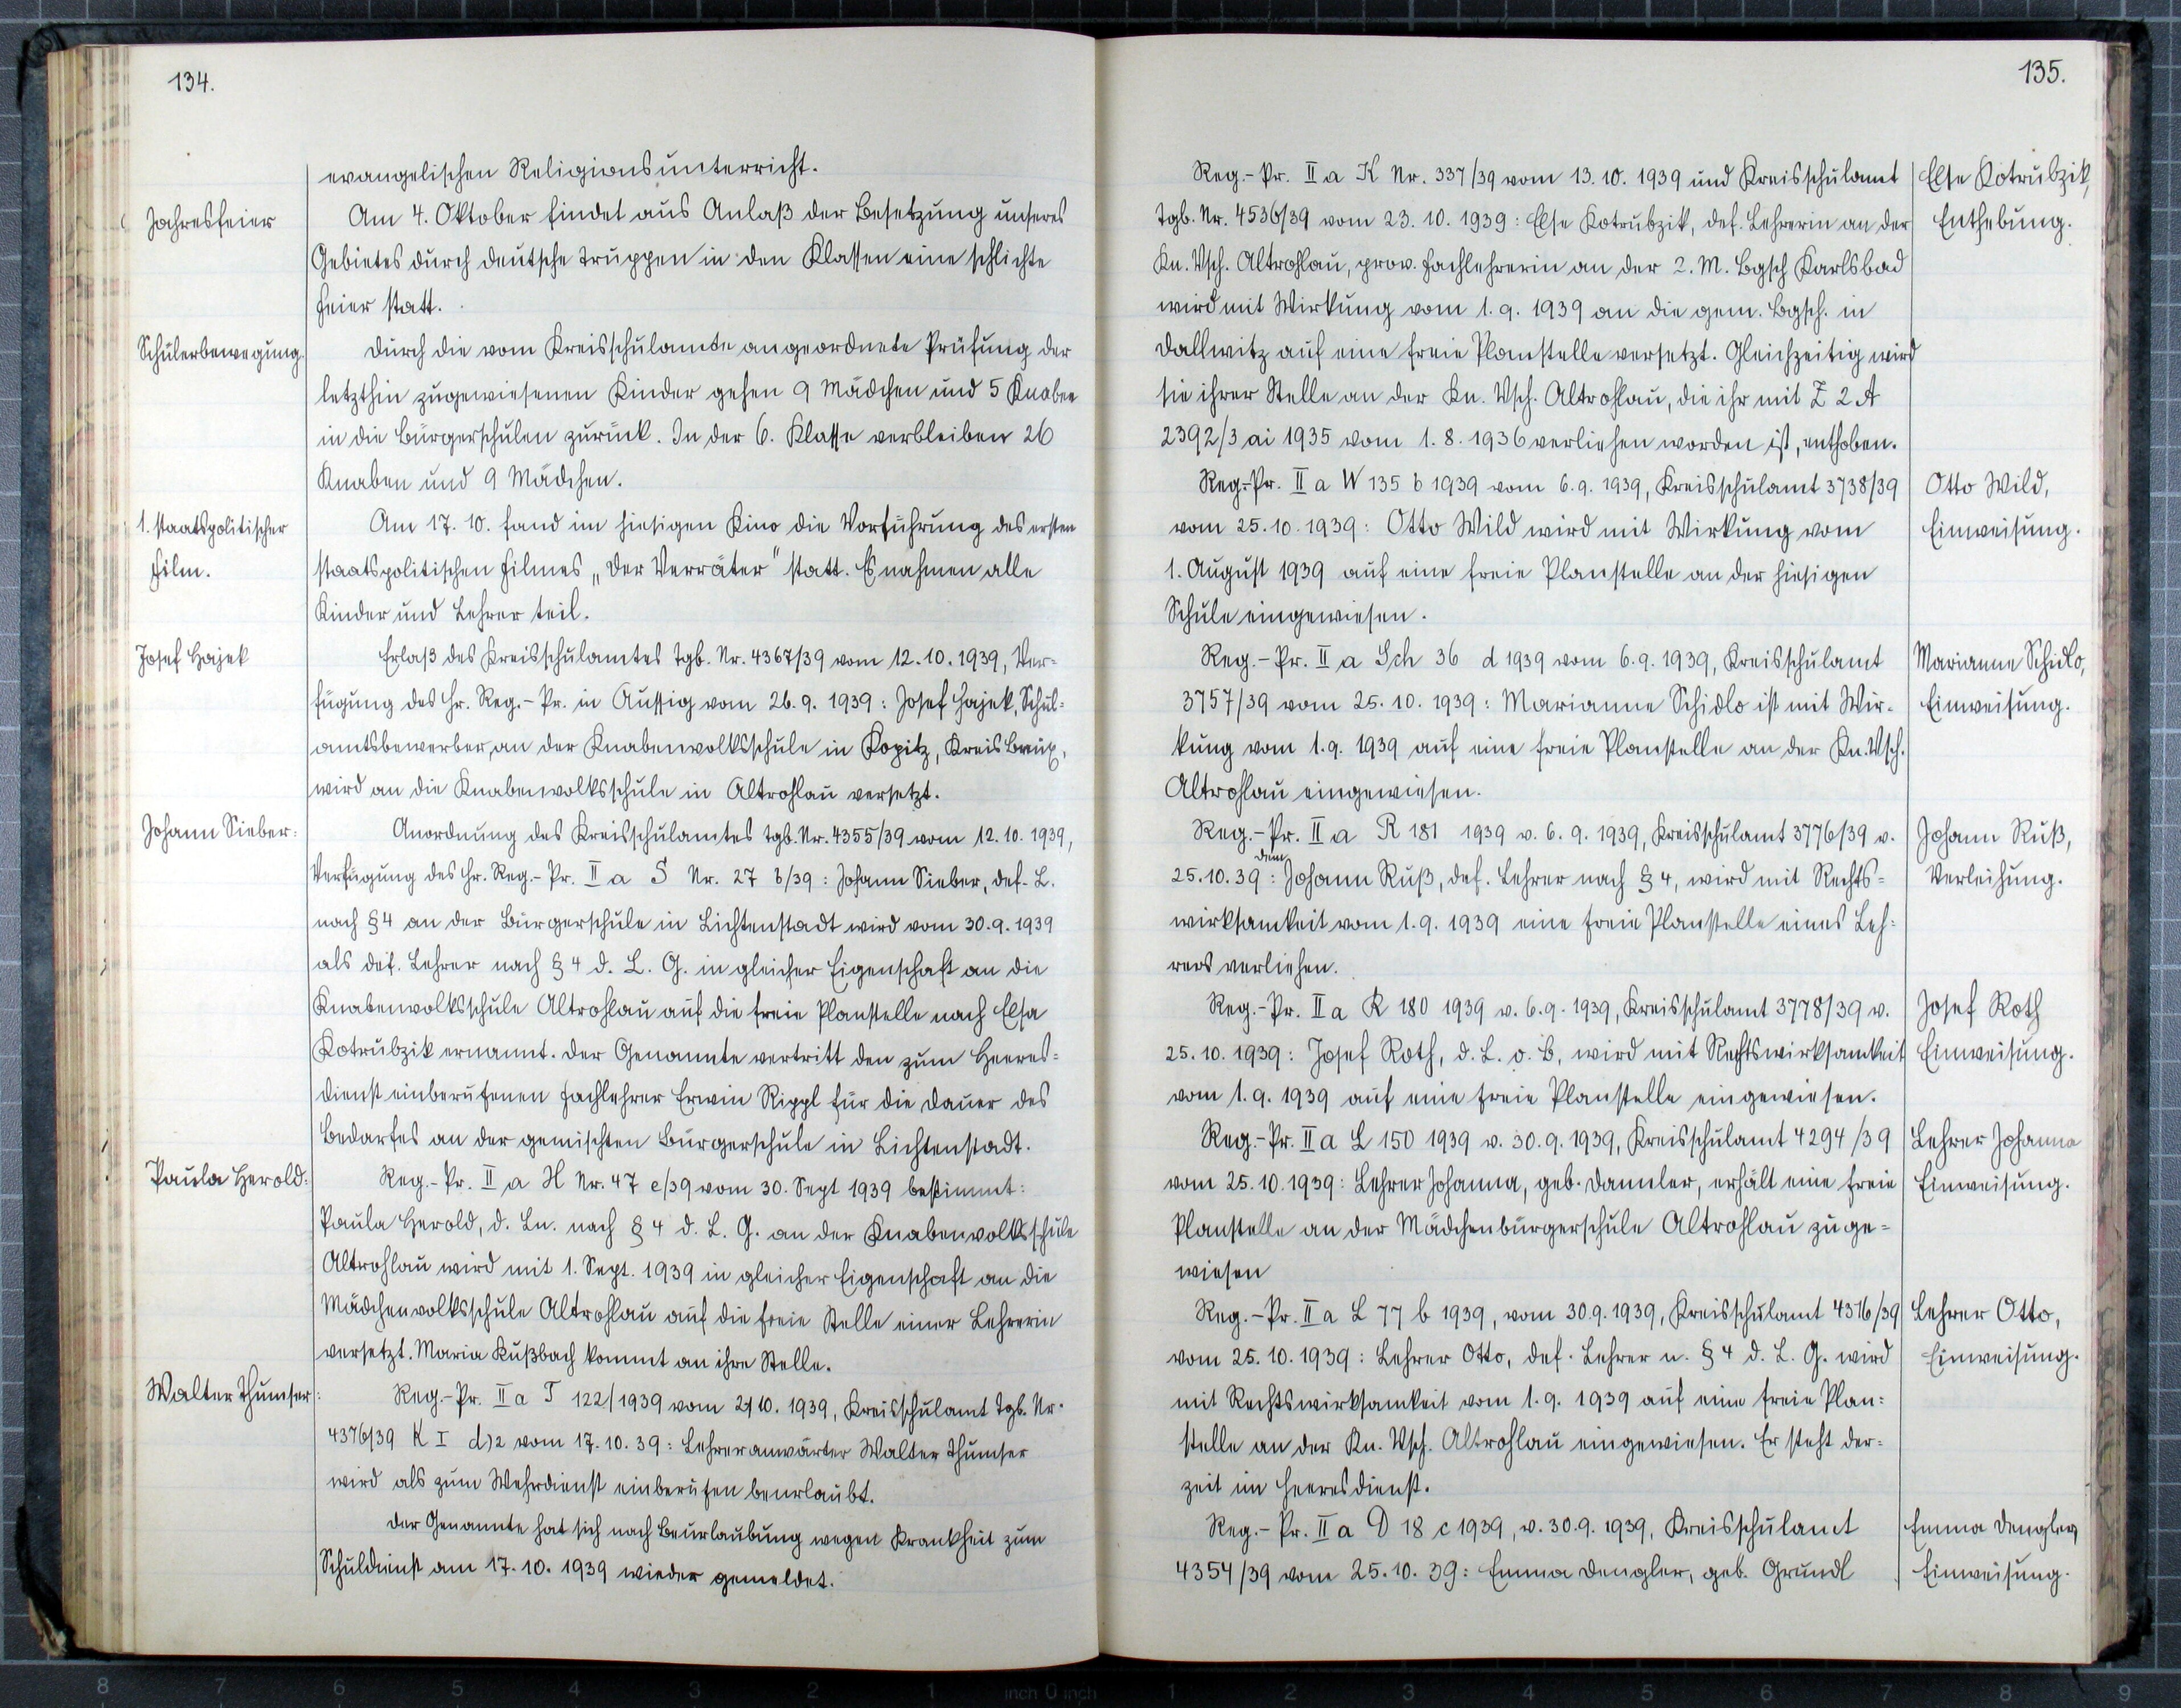 134.
evangelischen Religionsunterricht.
Jahresfeier
Am 4. Oktober findet aus Anlaß der Besetzung unseres
Gebietes durch deutsche Truppen in den Klassen eine schlichte
Feier statt.
Schülerbewegung.
Durch die vom Kreisschulamte angeordnete Prüfung der
letzthin zugewiesenen Kinder gehen 9 Mädchen und 5 Knaben
in die Bürgerschulen zurück. In der 6. Klasse verbleiben 26
Knaben und 9 Mädchen.
1. staatspolitischer
Film.
Am 17. 10. fand im hiesigen Kino die Vorführung des ersten
staatspolitischen Filmes „Der Verräter" statt. Es nahmen alle
Kinder und Lehrer teil.
Josef Hajek
Erlaß des Kreisschulamtes Tgb. Nr. 4367/39 vom 12. 10. 1939, Ver-
fügung des Hr. Reg.-Pr. in Aussig vom 26. 9. 1939: Josef Hajek, Schul-
amtsbewerber, an der Knabenvolksschule in Kopitz, Kreis Brüx,
wird an die Knabenvolksschule in Altrohlau versetzt.
Johann Sieber:
Anordnung des Kreisschulamtes Tgb. Nr. 4355/39 vom 12. 10. 1939,
Verfügung des Hr. Reg.-Pr. II a S Nr. 27 b/39: Johann Sieber, def. L.
nach § 4 an der Bürgerschule in Lichtenstadt wird vom 30. 9. 1939
als def. Lehrer nach § 4 d. L. G. in gleicher Eigenschaft an die
Knabenvolksschule Altrohlau auf die freie Planstelle nach Elsa
Kotrubzik ernannt. Der Genannte vertritt den zum Heeres-
dienst einberufenen Fachlehrer Erwin Rippl für die Dauer des
Bedarfes an der gemischten Bürgerschule in Lichtenstadt.
Paula Herold:
Reg.-Pr. II a H Nr. 47 e/39 vom 30. Sept 1939 bestimmt:
Paula Herold, d. Ln. nach § 4 d. L. G. an der Knabenvolksschule
Altrohlau wird mit 1. Sept. 1939 in gleicher Eigenschaft an die
Mädchenvolksschule Altrohlau auf die freie Stelle einer Lehrerin
versetzt. Maria Kußbach kommt an ihre Stelle.
Walter Thumser:
Reg.-Pr. II a T 122/1939 vom 10. 1939, Kreisschulamt Tgb. Nr.
4376/39 K I d)2 vom 17. 10. 39: Lehreranwärter Walter Thumser
wird als zum Wehrdienst einberufen beurlaubt.
Der Genannte hat sich nach Beurlaubung wegen Krankheit zum
Schuldienst am 17. 10. 1939 wieder gemeldet.
135.
Reg.-Pr. II a K Nr. 337/39 vom 13. 10. 1939 und Kreisschulamt
Tgb. Nr. 4536/39 vom 23. 10. 1939: Else Kotrubzik, def. Lehrerin an der
Kn. Vsch. Altrohlau, prov. Fachlehrerin an der 2. M. Bgsch Karlsbad
wird mit Wirkung vom 1. 9. 1939 an die gem. Bgsch. in
Dallwitz auf eine freie Planstelle versetzt. Gleichzeitig wird
sie ihrer Stelle an der Kn. Vsch. Altrohlau, die ihr mit Z 2 A
2392/3 ai 1935 vom 1. 8. 1936 verliehen worden ist, enthoben.
Else Kotrubzik,
Enthebung.
Reg.-Pr. II a W 135 b 1939 vom 6. 9. 1939, Kreisschulamt 3738/39
vom 25. 10. 1939: Otto Wild wird mit Wirkung vom
1. August 1939 auf eine freie Planstelle an der hiesigen
Schule eingewiesen.
Otto Wild,
Einweisung.
Reg.-Pr. II a Sch 36 d 1939 vom 6. 9. 1939, Kreisschulamt
3757/39 vom 25. 10. 1939: Marianne Schidlo ist mit Wir-
kung vom 1. 9. 1939 auf eine freie Planstelle an der Kn. Vsch.
Altrohlau eingewiesen.
Marianne Schidlo,
Einweisung.
Reg.-Pr. II a R 181 1939 v. 6. 9. 1939, Kreisschulamt 3776/39 v.
25. 10. 39: dem Johann Ruß, def. Lehrer nach § 4, wird mit Rechts-
wirksamkeit vom 1. 9. 1939 eine freie Planstelle eines Leh-
rers verliehen.
Johann Ruß,
Verleihung.
Reg.-Pr. II a R 180 1939 v. 6. 9. 1939, Kreisschulamt 3778/39 v.
25. 10. 1939: Josef Roth, d. L. o. B, wird mit Rechtswirksamkeit
vom 1. 9. 1939 auf eine freie Planstelle eingewiesen.
Josef Roth
Einweisung.
Reg.-Pr. II a L 150 1939 v. 30. 9. 1939, Kreisschulamt 4294/39
vom 25. 10. 1939: Lehrer Johanna, geb. Dannler, erhält eine freie
Planstelle an der Mädchenbürgerschule Altrohlau zuge-
wiesen
Lehrer Johanna
Einweisung.
Reg.-Pr. II a L 77 b 1939, vom 30. 9. 1939, Kreisschulamt 4316/39
vom 25. 10. 1939: Lehrer Otto, def. Lehrer n. § 4 d. L. G. wird
mit Rechtswirksamkeit vom 1. 9. 1939 auf eine freie Plan-
stelle an der Kn. Vsch. Altrohlau eingewiesen. Er steht der-
zeit im Heeresdienst.
Lehrer Otto,
Einweisung.
Reg.-Pr. II a D 18 c 1939, v. 30. 9. 1939, Kreisschulamt
4354/39 vom 25. 10. 39: Emma Dengler, geb. Grundl
Emma Dengler,
Einweisung.
8 7 6 5 4 3 2 1 inch 0 inch 1 2 3 4 5 6 7 8 9